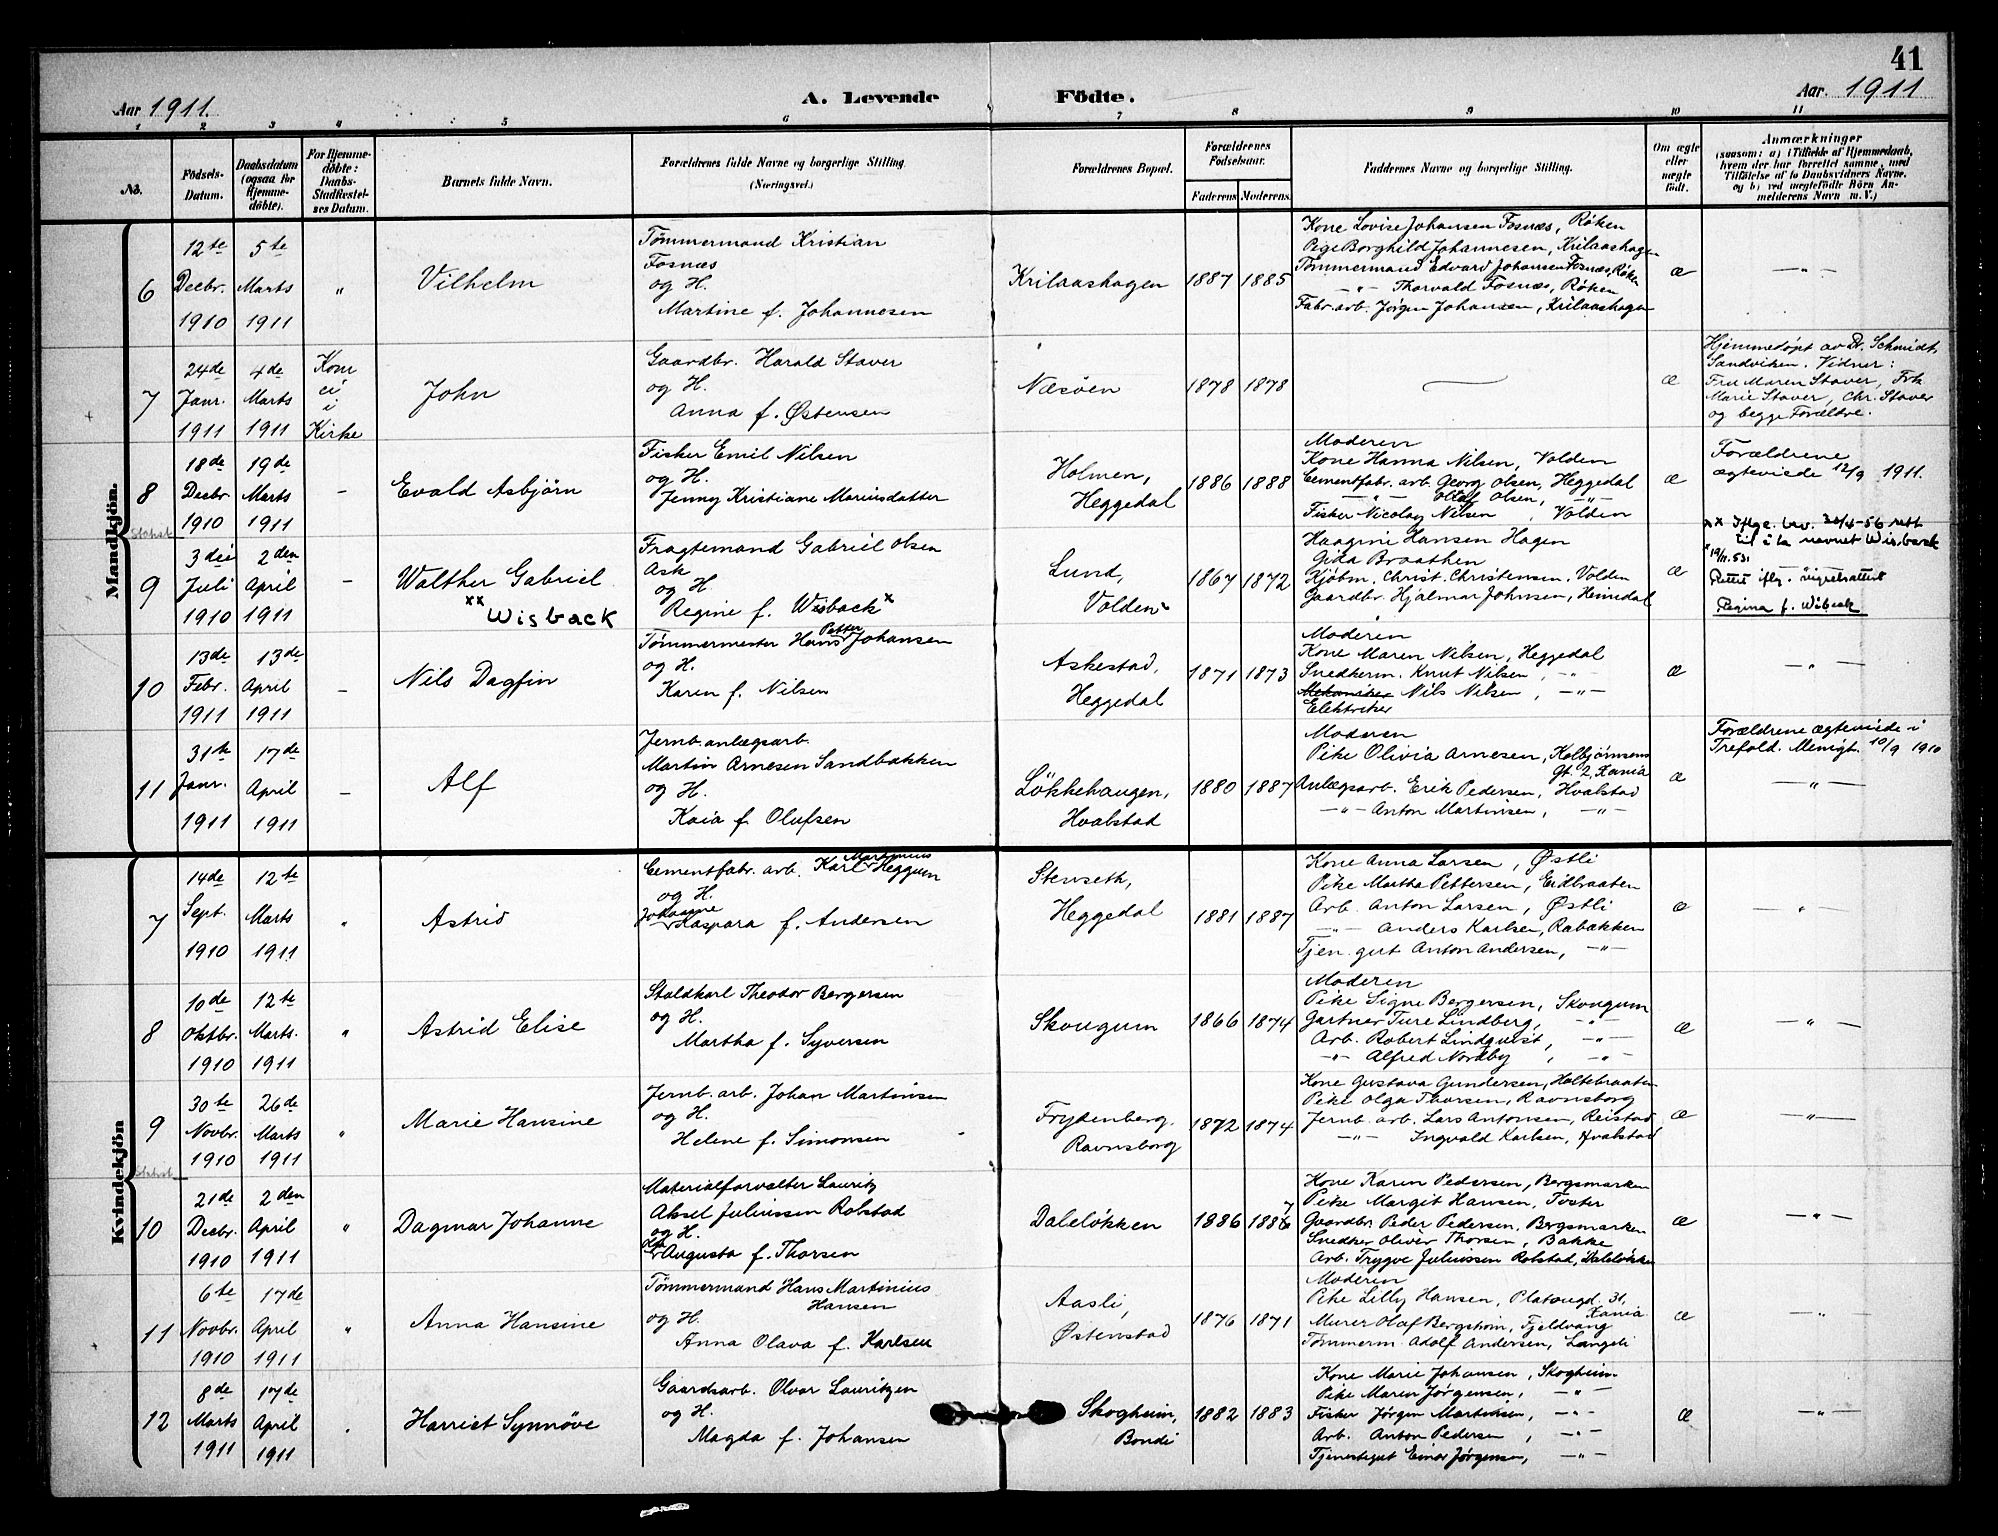 41
Aar 1911.
A. Levende Födte.
Aar. 1911
1 2 3 4 5 6 7 8 9 10 11
No.
Födsels-Datum.
Daabsdatum (ogsaa for Hjemme-döbte).
For Hjemme-döbte: Daabs-Stadfæstel-ses Datum.
Barnets fulde Navn.
Forældrenes fulde Navne og borgerlige Stilling.
(Næringsvei.)
Forældrenes Bopæl.
Forældrenes Födselsaar.
Faderens Moderens
Faddernes Navne og borgerlige Stilling.
Om ægte eller uægte födt.
Anmærkninger
(saasom: a) i Tilfælde af Hjemmedaab, hvem der har forrettet samme, med Tilföielse af to Daabsvidners Navne, og b) ved uægtefödte Börn An-melderens Navn m. V.)
Mandkjön.
6
12te Decbr. 1910
5te Marts 1911
"
Vilhelm
Tømmermand Kristian
Fosnæs
og H.
Martine f. Johannesen
Krilaashagen
1887 1885
Kone Lovise Johansen Fosnæs, Røken
Pige Borghild Johannesen, Krilaashagen
Tømmermand Edvard Johansen Fosnæs, Røken
—"— Thorvald Fosnæs, Røken
Fabr. arb. Jørgen Johansen, Krilaashagen
Æ
—"—
7
24de Janr. 1911
4de Marts 1911
Kom ei i Kirke
John
Gaardbr. Harald Staver
og H.
Anna f. Østensen
Næsöen
1878 1878
—
Æ
Hjemmedøpt av Dr. Schmidt,
Sandviken. Vidner:
Fru Maren Staver, Frk
Marie Staver, Chr. Staver
og begge Forældre.
8
18de Decbr 1910
19de Marts 1911
—
Evald Asbjörn
Fisker Emil Nilsen
og H.
Jenny Kristiane Mariusdatter
Holmen,
Heggedal
1886 1888
Moderen
Kone Hanna Nilsen, Volden
Cementfabr. arb. Georg Olsen, Heggedal
—"— Olaf Olsen, —"—
Fisker Nicolay Nilsen, Volden
Æ
Forældrene
ægteviede 12/9 1911.
9
3die Juli 1910
2den April 1911
—
Walther Gabriel
xx Wisback
Fragtemand Gabriel Olsen
Ask
og H
Regine f. Wisback x
Lund,
Volden
1867 1872
Haagine Hansen Hagen
Gida Braathen
Kjøbm. Christ. Christensen. Volden
Gaardbr. Hjalmar Johnsen, Heimdal
Æ
xx Iflge. bev. 20/4-56 rett
til å ta navnet Wisback
x 19/11.53:
Rettet iflg. vigselsattest
Regina f. Wibeck
10
13de Febr. 1911
13de April 1911
—
Nils Dagfin
Tømmermester Hans Petter Johansen
og H.
Karen f. Nilsen
Askestad,
Heggedal
1871 1873
Moderen
Kone Maren Nilsen, Heggedal
Snedkerm. Knut Nilsen, —"—
Mekaniker Nils Nilsen, —"—
Elektriker
Æ
—"—
11
31te Janr. 1911
17de April 1911
—
Alf
Jernb.anlægsarb.
Martin Arnesen Sandbakken
og H.
Kaia f. Olufsen
Lökkehaugen,
Hvalstad
1880 1887
Moderen
Pike Olivia Arnesen, Kolbjørnsens
Gt. 2, Xania
Anlægsarb. Erik Pedersen, Hvalstad
—"— Anton Martinsen, —"—
Æ
Forældrene ægteviede i
Trefold. Menigt. 10/9 1910
—"—
Kvindekjön
7
14de Sept. 1910
12te Marts 1911
"
Astrid
Cementfabr. arb. Karl Martinius Heggum
og H.
Johanne Kaspara f. Andersen
Stenseth,
Heggedal
1881 1887
Kone Anna Larsen, Østli
Pike Martha Pettersen, Eidbraaten
Arb. Anton Larsen, Østli
—"— Anders Karlsen, Rabakken
Tjen. gut Anton Andersen, —"—
Æ
—"—
8
10de Oktbr. 1910
12te Marts. 1911
"
Astrid Elise
Staldkarl Theodor Bergersen
og H.
Martha f. Syversen
Skougum
1866 1874
Moderen
Pike Signe Bergersen, Skougum
Gartner Ture Lindberg, —"—
Arb. Robert Lindqvist, —"—
—"— Alfred Nordby, —"—
Æ
—"—
9
30te Novbr. 1910
26de Marts 1911
"
Marie Hansine
Jernb. arb. Johan Martinsen
og H.
Helene f. Simonsen
Frydenberg.
Ravnsborg
1872 1874
Kone Gustava Gundersen, Holtebraaten
Pike Olga Thorsen, Ravnsborg
Jernb. arb. Lars Antonsen, Reistad
—"— Ingvald Karlsen, Hvalstad
Æ
—"—
10
21de Decbr. 1910
2den April 1911
"
Dagmar Johanne
Materialforvalter Lauritz
Aksel Juliussen Rolstad
og H.
Augusta f. Thorsen
Daleløkken
1886 1886 7
Kone Karen Pedersen, Bergsmarken
Pike Margit Hansen, Tveter
Gaardbr. Peder Pedersen, Bergsmarken
Snedker Oliver Thorsen, Bakke
Arb. Trygve Juliussen Rolstad, Daleløkken
Æ
—"—
11
6te Novbr. 1910
17de April 1911
"
Anna Hansine
Tømmermand Hans Martinius
Hansen
og H.
Anna Olava f. Karlsen
Aasli,
Østenstad
1876 1871
Moderen
Pike Lilly Hansen, Platougd. 31,
Xania
Murer Olaf Bergström, Fjeldvang
Tømmerm. Adolf Andersen, Langeli
Æ
—"—
12
8de Marts 1911
17de April 1911
"
Harriet Synnöve
Gaardsarb. Olvar Lauritzen
og H.
Magda f. Johansen
Skogheim,
Bondi
1882 1883
Kone Marie Johansen, Skogheim
Pike Maren Jørgensen, —"—
Fisker Jørgen Martinsen, —"—
Arb. Anton Pedersen, —"—
Tjenestegut Einar Jørgensen, —"—
Æ
—"—